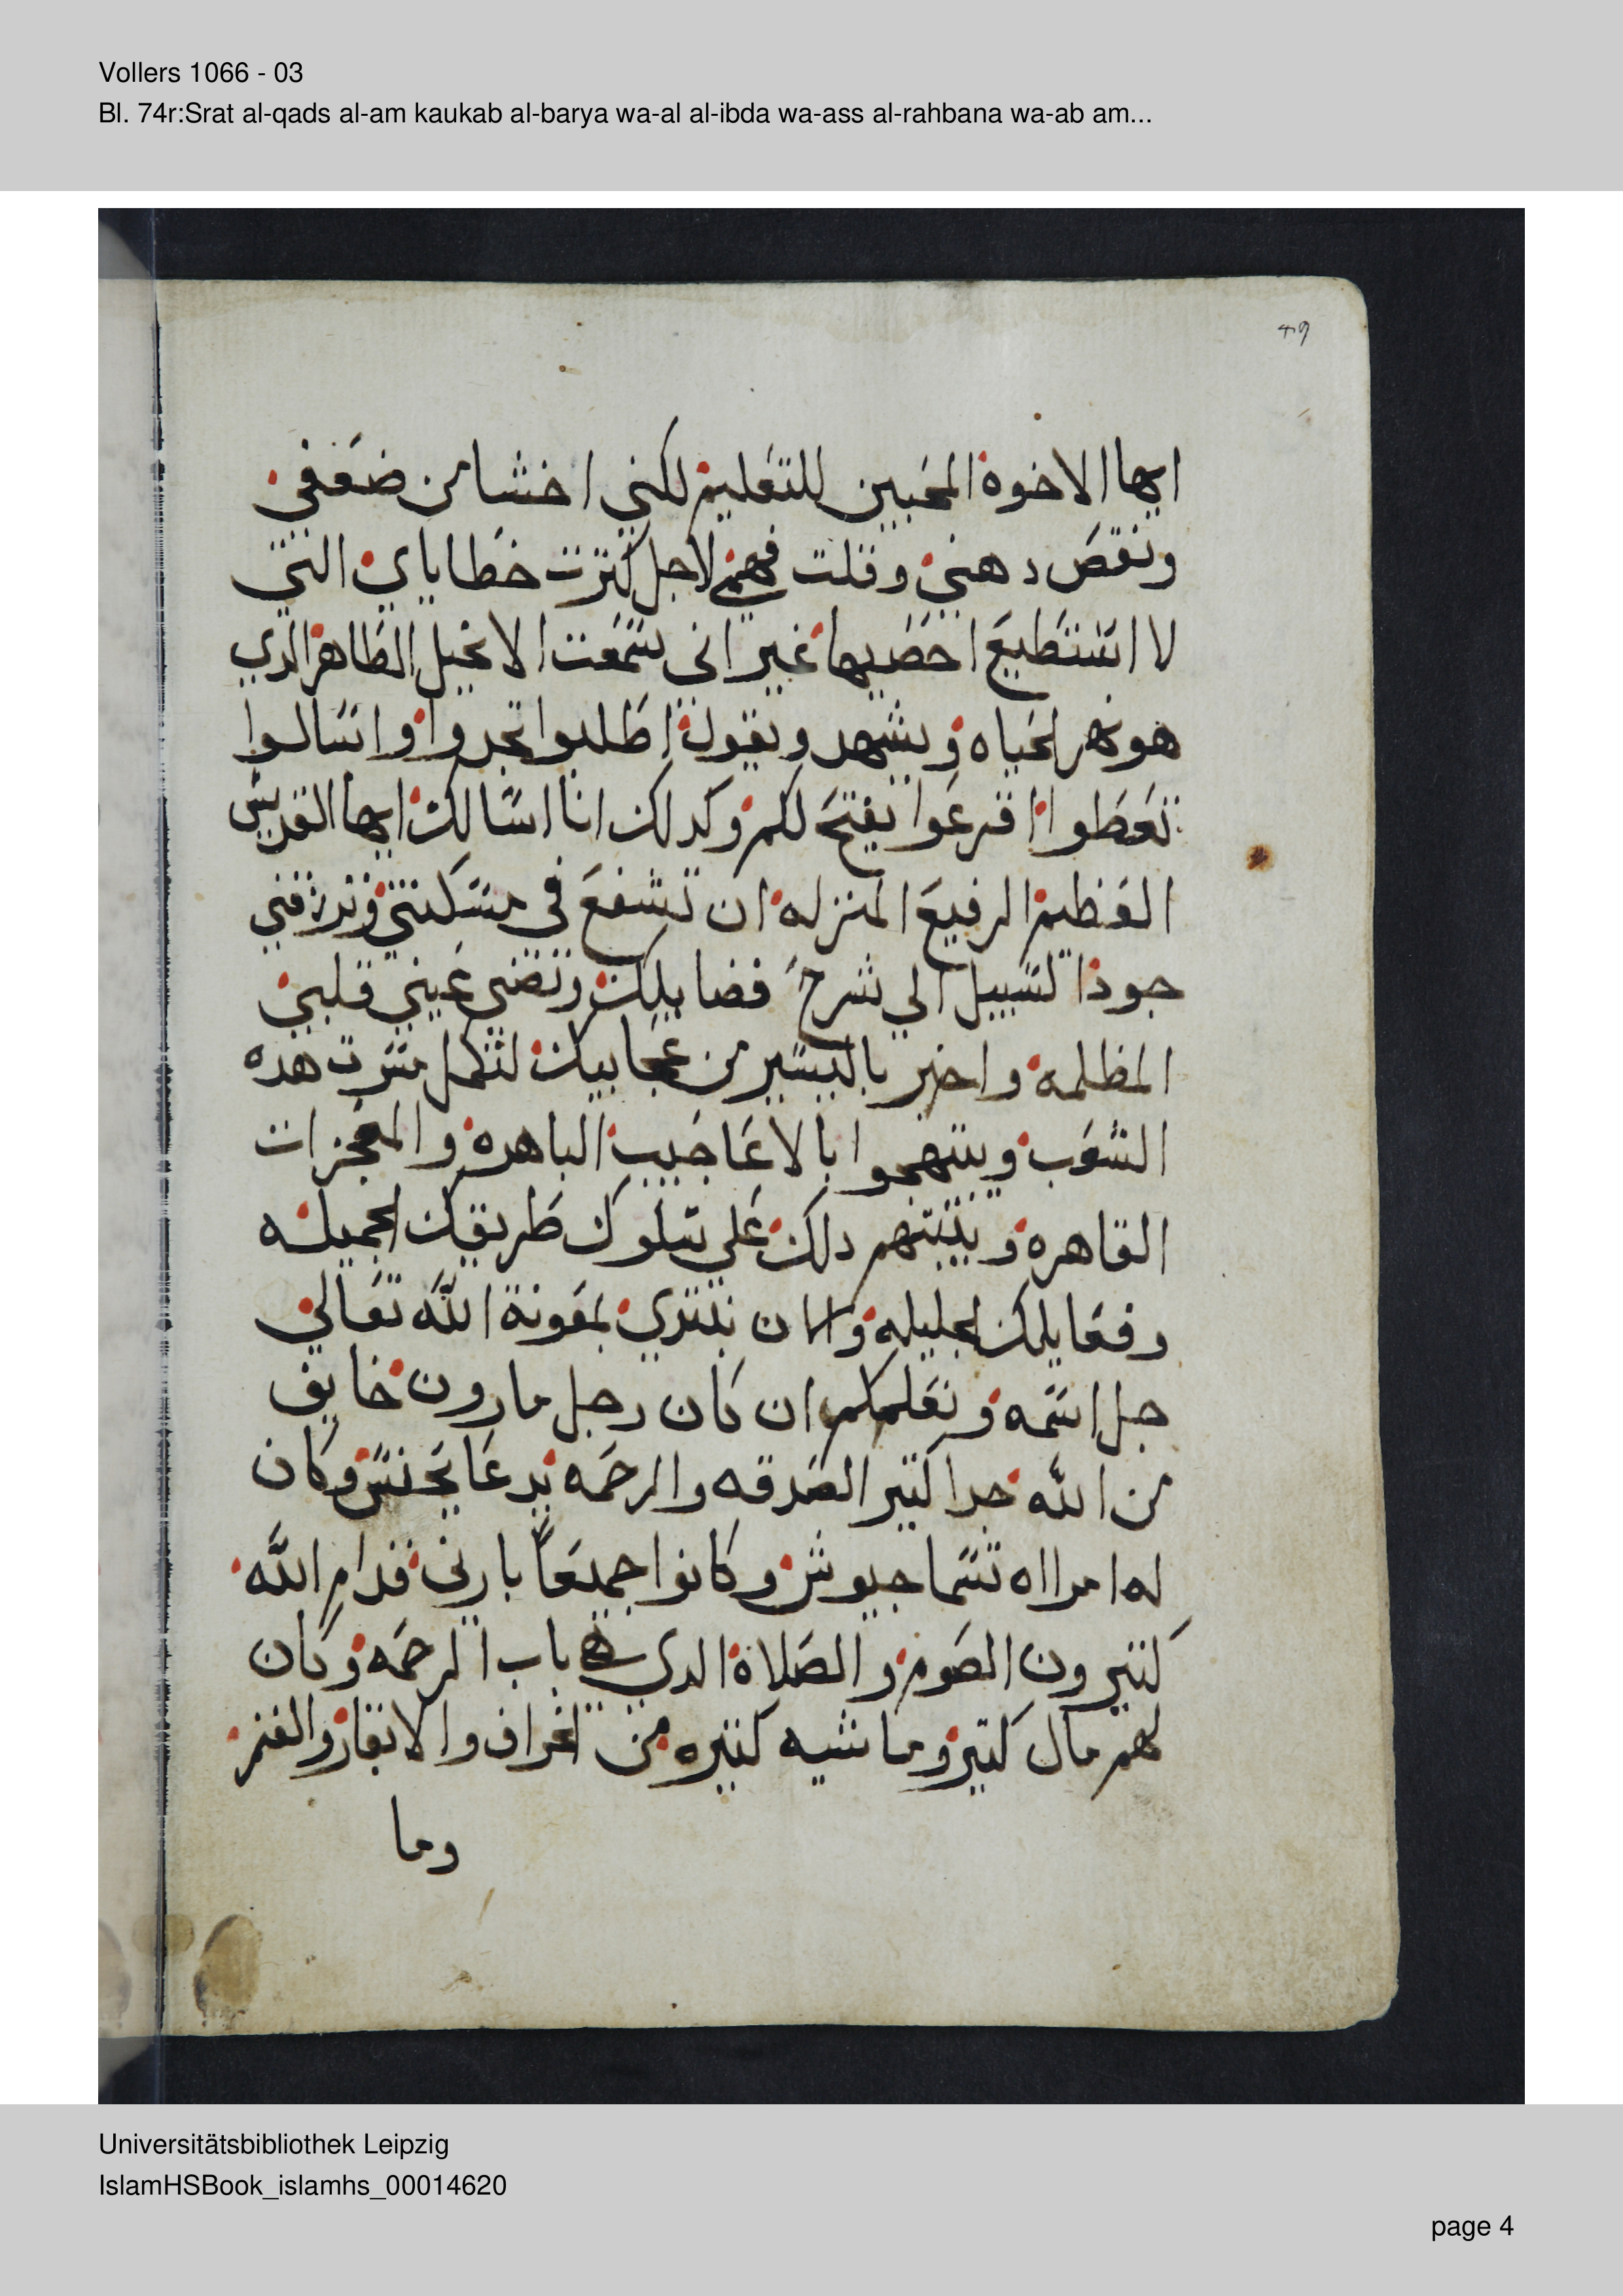 Vollers 1066 - 03
Bl. 74r:Srat al-qads al-am kaukab al-barya wa-al al-ibda wa-ass al-rahbana wa-ab am...
ايها الاخوة المحبين للتعليم لكني اخشا من ضعفي
ونقص دهني وقلت فهمي لاجل كترت خطاياي التي
لا استطيع احصيها غير اني سمعت الانجيل الطاهر الدي
هو نهر الحياه ويشهد ويقول اطلبوا تجدوا واسالوا
تعطوا اقرعوا يفتح لكم وكدلك انا اسالك ايها القديس
العظيم الرفيع المنزله ان تشفع في مسكنتي وترزقني
جودا لسبيل الي شرح فضايلك وتضي عيني قلبي
المظلمه واخبر باليسير من عجاييك لتكمل مسرت هده
الشعب ويبتهجوا بالاعاجيب الباهره والمعجزات
القاهره ويتبتهم دلك علي سلوك طريقك الجميله
وفعايلك الجليله والان نبتدي بمعونة الله تعالي
جل اسمه ونعلمكم ان كان رجل مارون خايف
من الله جدا كتير الصدقه والرحمه يدعا يحنس وكان
له امراه تسما جيوش وكانوا جميعا بارين قدام الله
كتيرون الصوم والصلاة الدي هي باب الرحمه وكان
لهم مال كتير وماشيه كتيره من الخراف والابقار والغنم
وما
Universitätsbibliothek Leipzig
IslamHSBook_islamhs_00014620
page 4